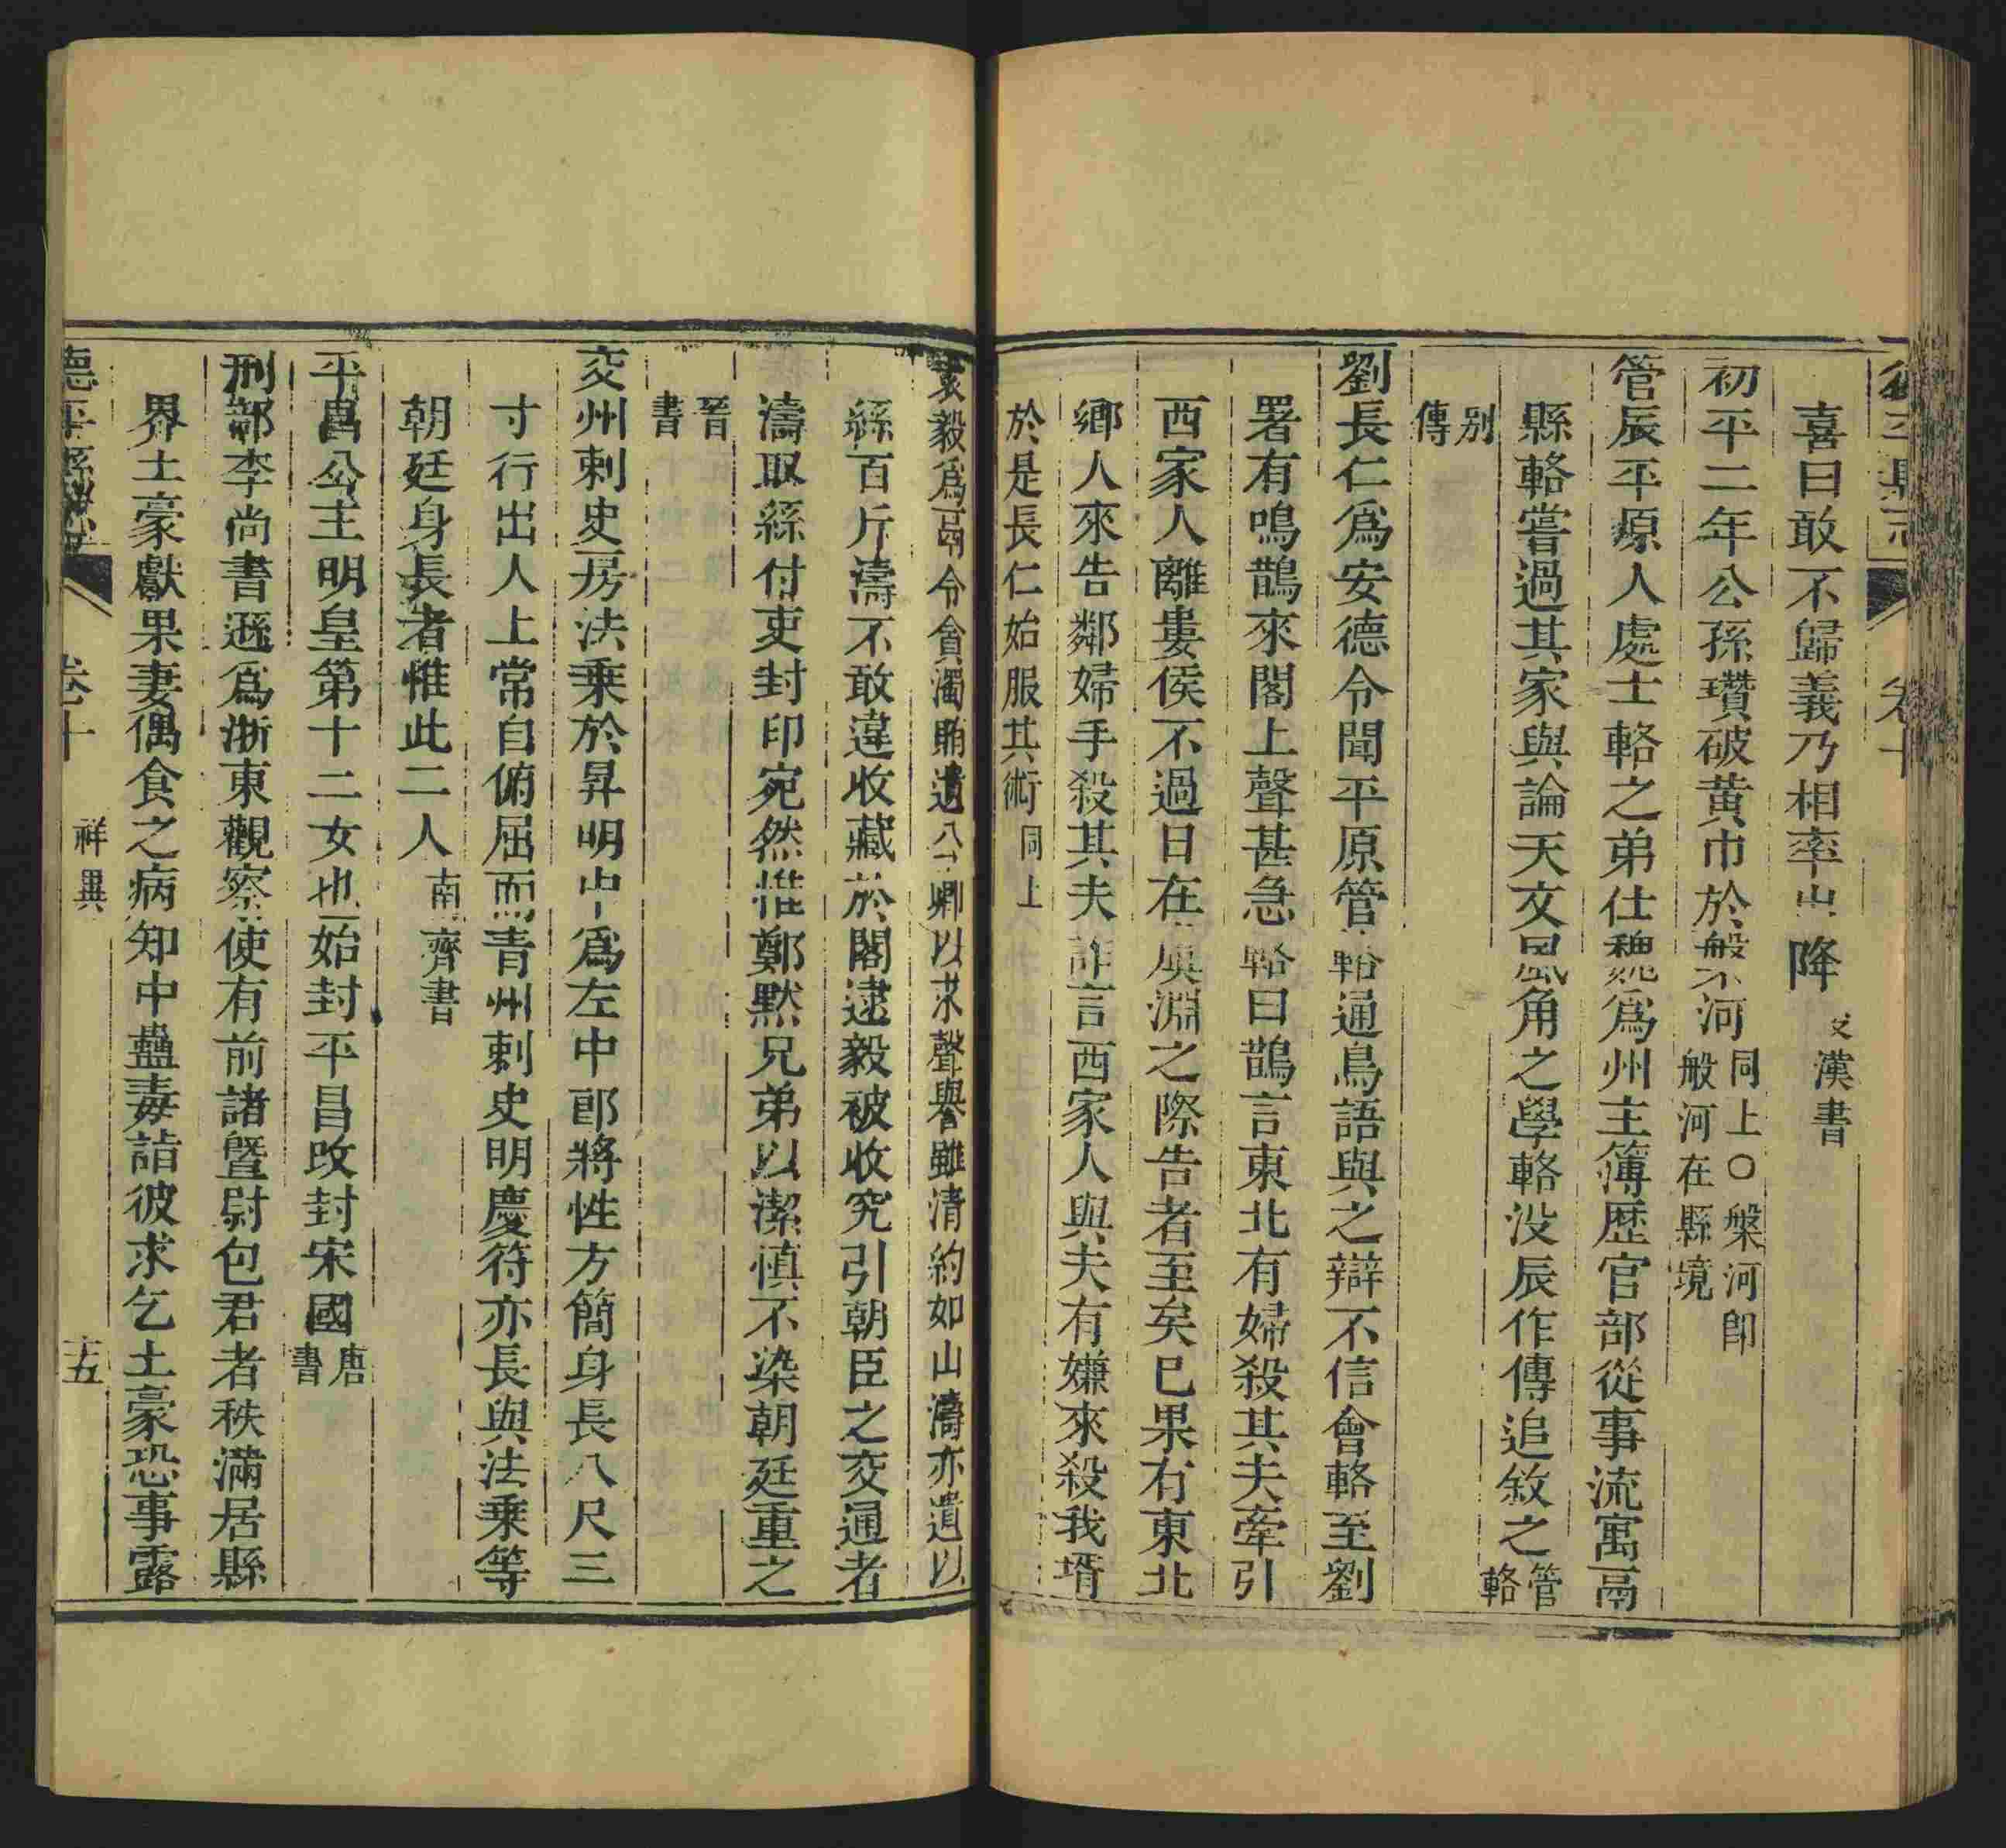 喜曰敢不歸義乃相率出降漢書
初平二年公孫瓚破黄巾於槃河同上○槃河卽
般河在縣境
管辰平原人處士輅之弟仕魏爲州主簿歴官部從事流寓鬲
縣輅嘗過其家與論天文風角之學輅没辰作傳追敘之管輅
别傳
劉長仁爲安德令聞平原管輅通鳥語與之辯不信會輅至劉
署有鳴鵲來閣上聲甚急輅曰鵲言東北有婦殺其夫牽引
西家人離婁侯不過日在虞淵之際告者至矣已果有東北
鄉人來告鄰婦手殺其夫詐言西家人與夫有嫌來殺我壻
於是長仁始服其術同上
袁毅爲鬲令貪濁賂遺公卿以求聲譽雖清約如山濤亦遺以
絲百斤濤不敢違收藏於閣逮毅被收究引朝臣之交通者
濤取絲付吏封印宛然惟鄭默兄弟以潔慎不染朝廷重之
晉書
交州刺史房法乗於昇明中爲左中郎將性方簡身長八尺三
寸行出人上常自俯屈而青州刺史明慶符亦長與法乗等
朝廷身長者惟此二人南齊書
平昌公主明皇第十二女也始封平昌改封宋國唐書
刑部李尚書遜爲浙東觀察使有前諸暨尉包君者秩滿居縣
界土豪獻果妻偶食之病知中蠱毒詣彼求乞土豪恐事露
德平縣志
卷十
祥異
十五